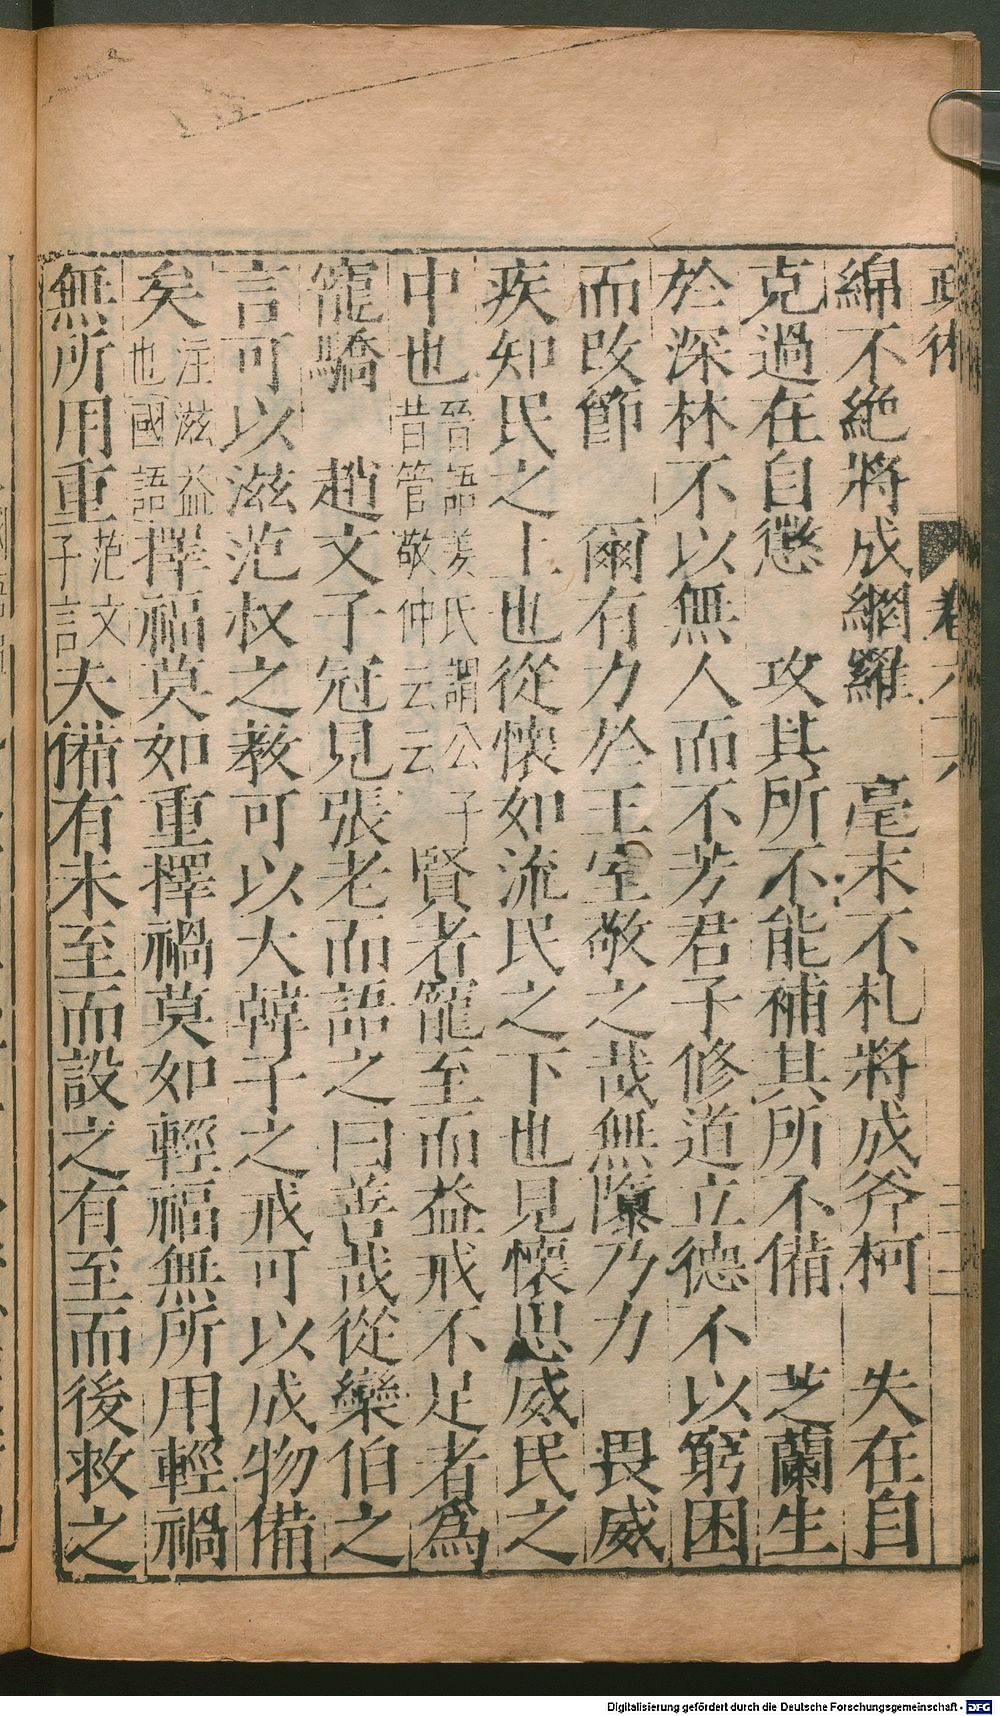 綿不絕將成網羅　毫末不札將成斧柯　失在自
克過在自懲　攻其所不能補其所不備　芝蘭生
於深林不以無人而不芳君子修道立德不以窮困
而改節　爾有力於王室敬之哉無隳乃力　畏威
疾如民之上也從懷如流民之下也見懷思威民之
中也晉語姜氏謂公子昔管敬仲云云賢者寵至而益戒不足者為
寵驕　趙文子冠見張老而語之曰善哉從欒伯之
言可以滋范叔之教可以大韓子之戒可以成物備
矣注滋益也國語擇福莫如重擇禍莫如輕福無所用輕禍
無所用重范文子言夫備有未至而設之有至而後救之
Digitalisierung gefördert durch die Deutsche Forschungsgemeinschaft - DFG